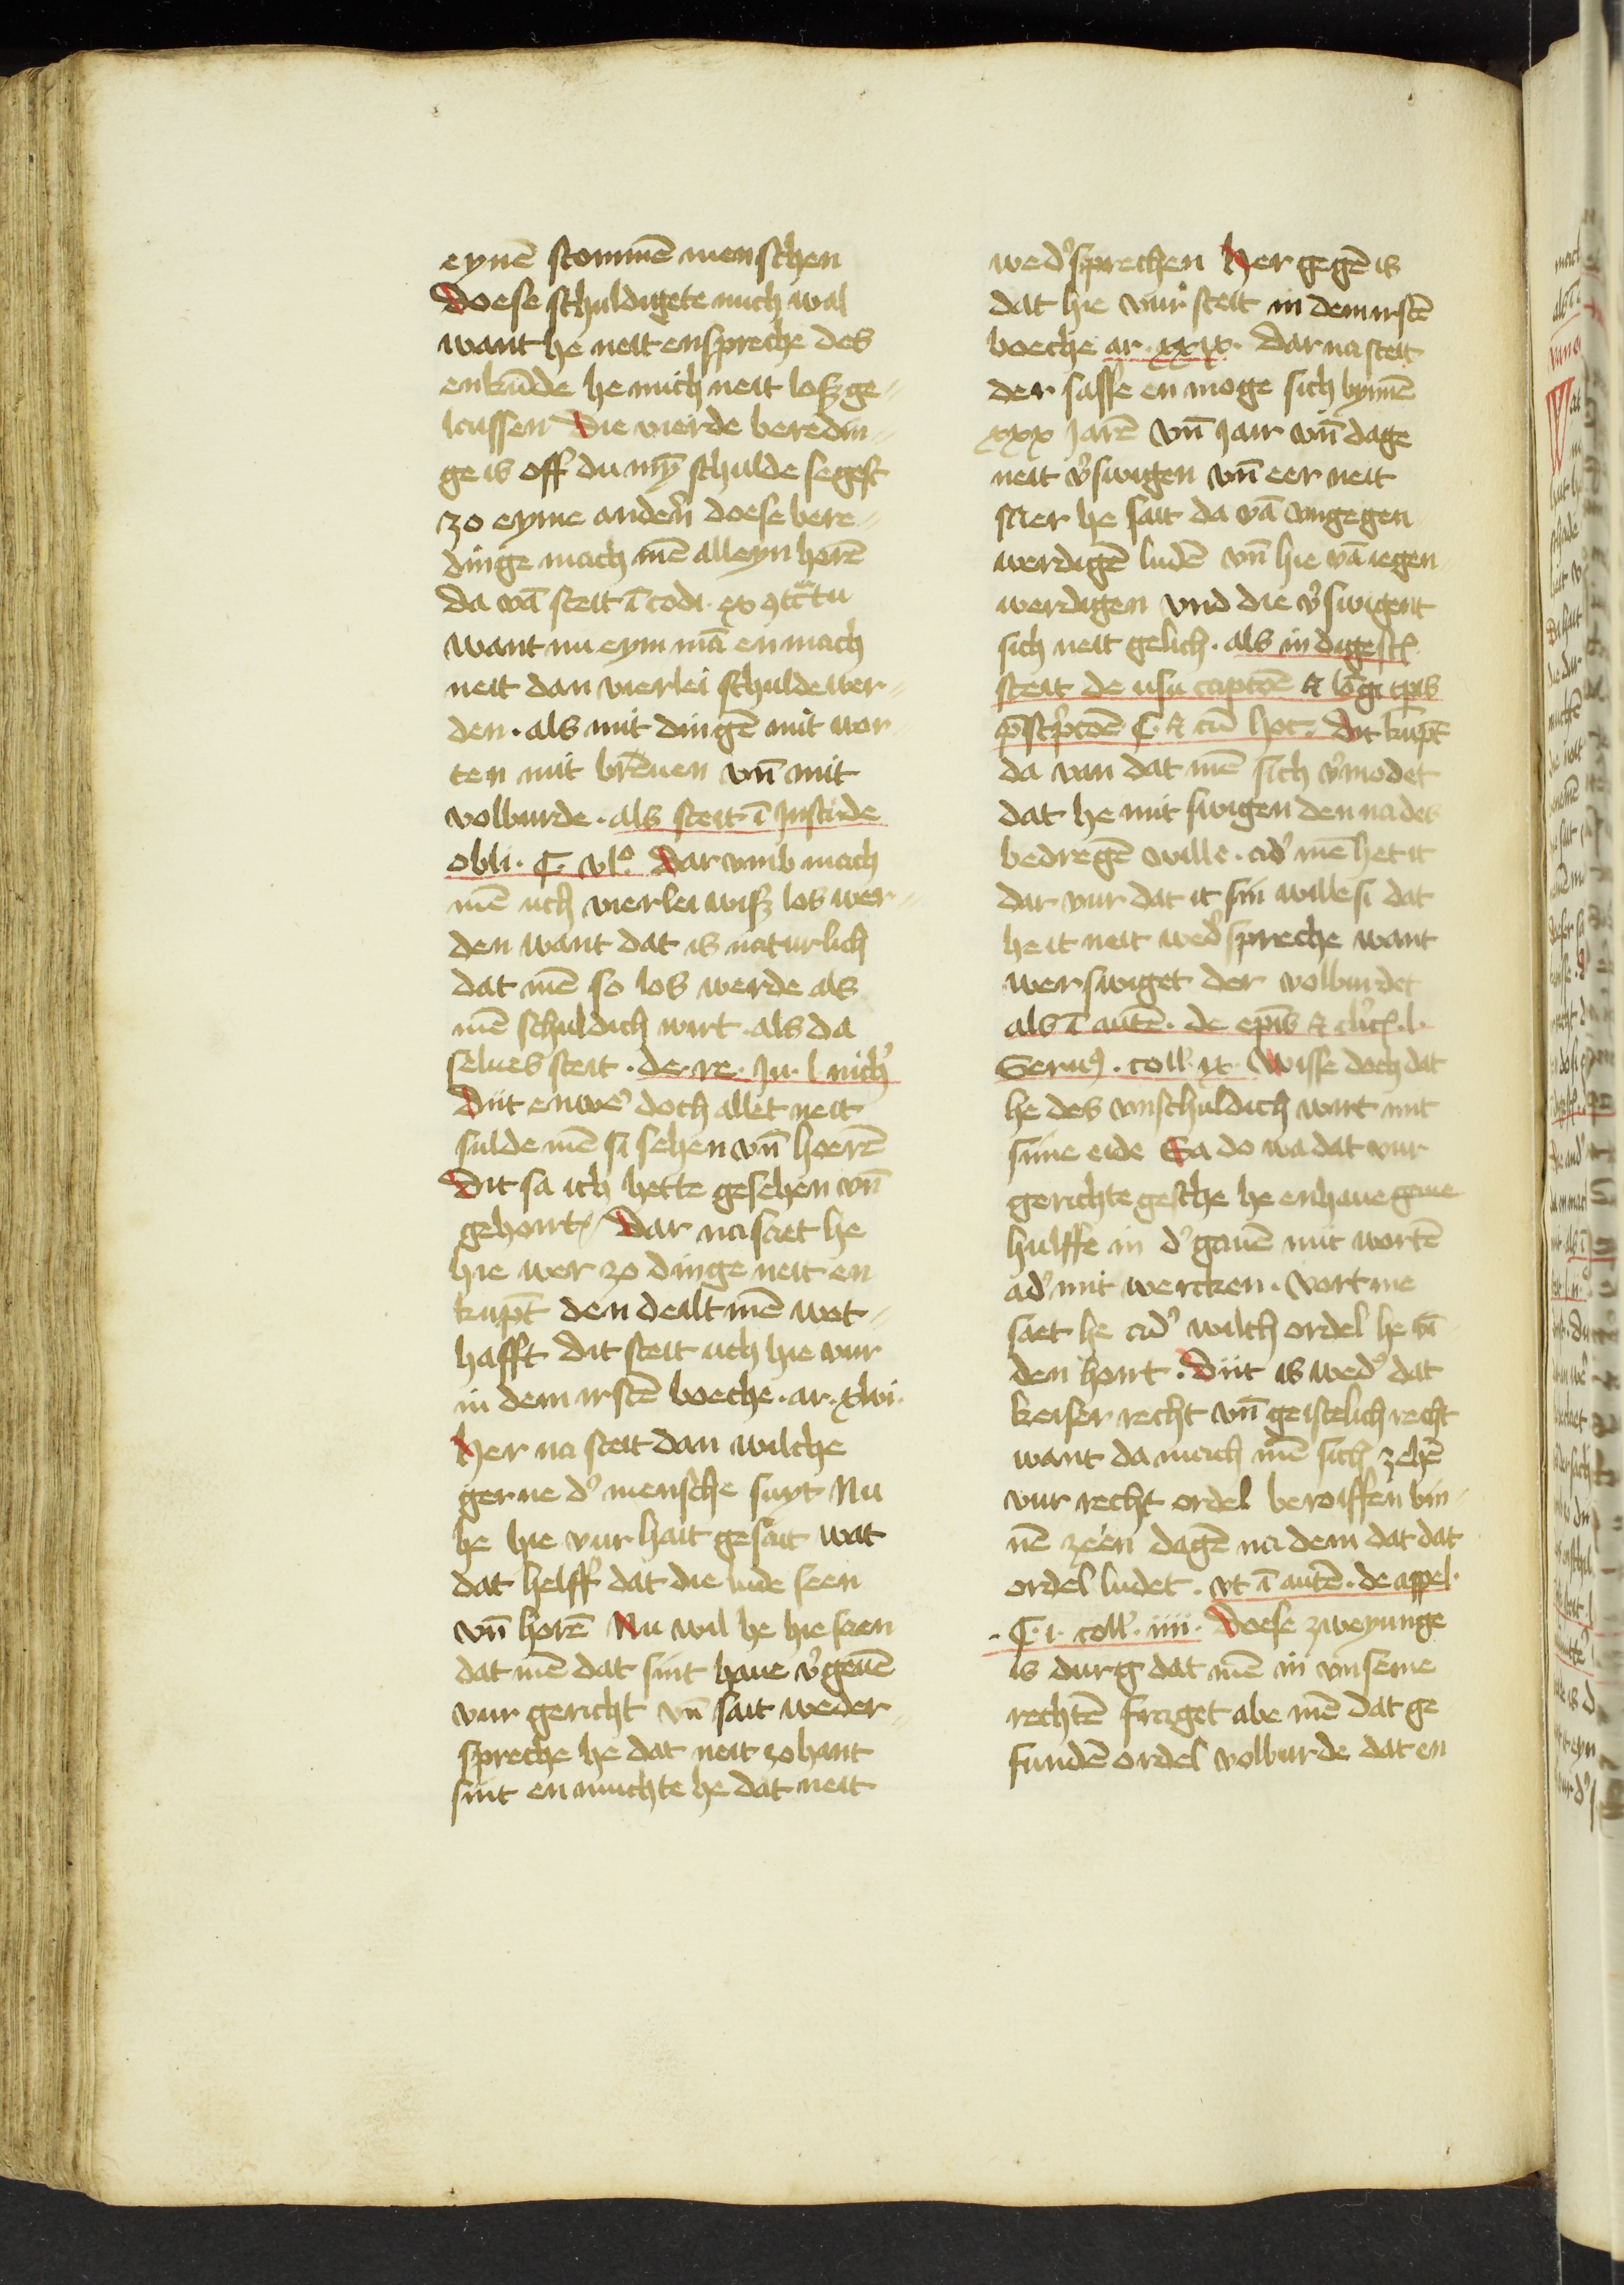 eynē stommē menschen
Doese schuldigete mich wal
want he neit enspreche des
enkūde he mich neit losz ge-
laissen Die vierde beredin-
ge is off du mȳ schulde segest
zo eyme andern̄ doese bere-
dinge mach mē alleyn horē
da vā steit ī codi. ex ꝯtc̄tu
want nu eym mā en mach
neit dan vierlei schulde wer-
den. als mit dingē mit wor-
ten mit brēuen vn̄ mit
volburde. als steit ī Insti de
obli. ¶. vlº. Dar vmb mach
mē uch vierlei wisz los wer-
den want dat is naturlich
dat mē so los werde als
mē schuldich wirt. als da
selues steit. de. re. Iu. l. nich̕
Dit enwe̕ doch allet neit
sulde mē si sehen vn̄ hoerē
Dit sa ich hette gesehen vn̄
gehoirt / Dar na saet he
hie wer zo dinge neit en
kupt̄ den dealt mē wet-
hafft Dit steit uch hie vur
in dem irstē boeche. ar. xlvi.
Her na steit dan wilche
gerne d̕ mensche suyt Nu
he hie vur hait gesait wat
dat helff dat die lude seen
vn̄ horē Nu wil he hie saen
dat mē dat sint haue v̕geuē
vur gericht vn̄ sait weder-
spreche he dat neit zohant
sint en muchte he dat neit
wed̕sprechen Her gegē is
dat hie vur steit in dem irstē
boeche ar. xxix. Dar na steit
der sasse en moge sich bynnē
xxx Jarē vn̄ Jair vn̄ dage
neit v̕swigen vn̄ eer neit
Mer he sait da vā vngegen
werdigē ludē vn̄ hie vā iegen
werdigen vnd die v̕swigent
sich neit gelich. als in digest̄
steit de usu captōe & lōgi tp̄is
p̄scr̕ptōe ¶. & cū hoc. Dit kupt̄
da van dat mē sich v̕modet
dat he mit swigen den nades
bedregē wille. ad̕ mē het it
dar vur dat it sin wille si dat
he it neit wed̕spreche want
wer swiget der volburdet
als ī autē. de ep̄is & cl̕ic̄. l.
Seruꝰ. coll̕. ix. Wisse doch dat
he des vnschuldich wirt mit
sime eide Sa do wa dat vur
gerichte gesche he enhaue geine
hulffe in d̕ gauē mit wortē
ad̕ mit wercken. Vort me
saet he ad̕ wilch ordel he vī-
den hoirt. Dit is wed̕ dat
keiser recht vn̄ geistelich recht
want da mach mē sich zehē
vur recht ordel beroiffen bin-
nē zeen dagē na dem dat dat
ordel ludet. vt ī autē. de appel.
. ¶. i. coll̕. iiii. Doese zweyunge
is durg dat mē in vnseme
rechtē fraget abe mē dat ge
fundē ordel volburde dat en